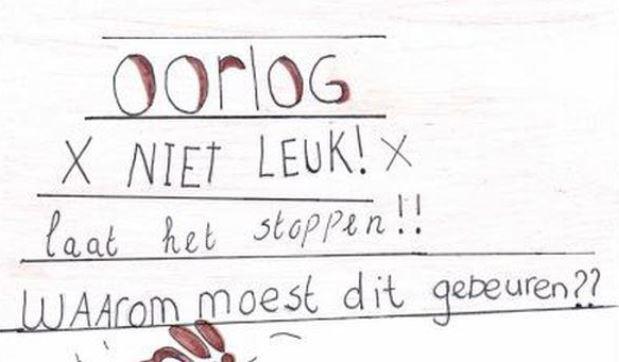 oorloG
X NIET LEUK! X
laat het stoppen!!
WAArom moest dit gebeuren??